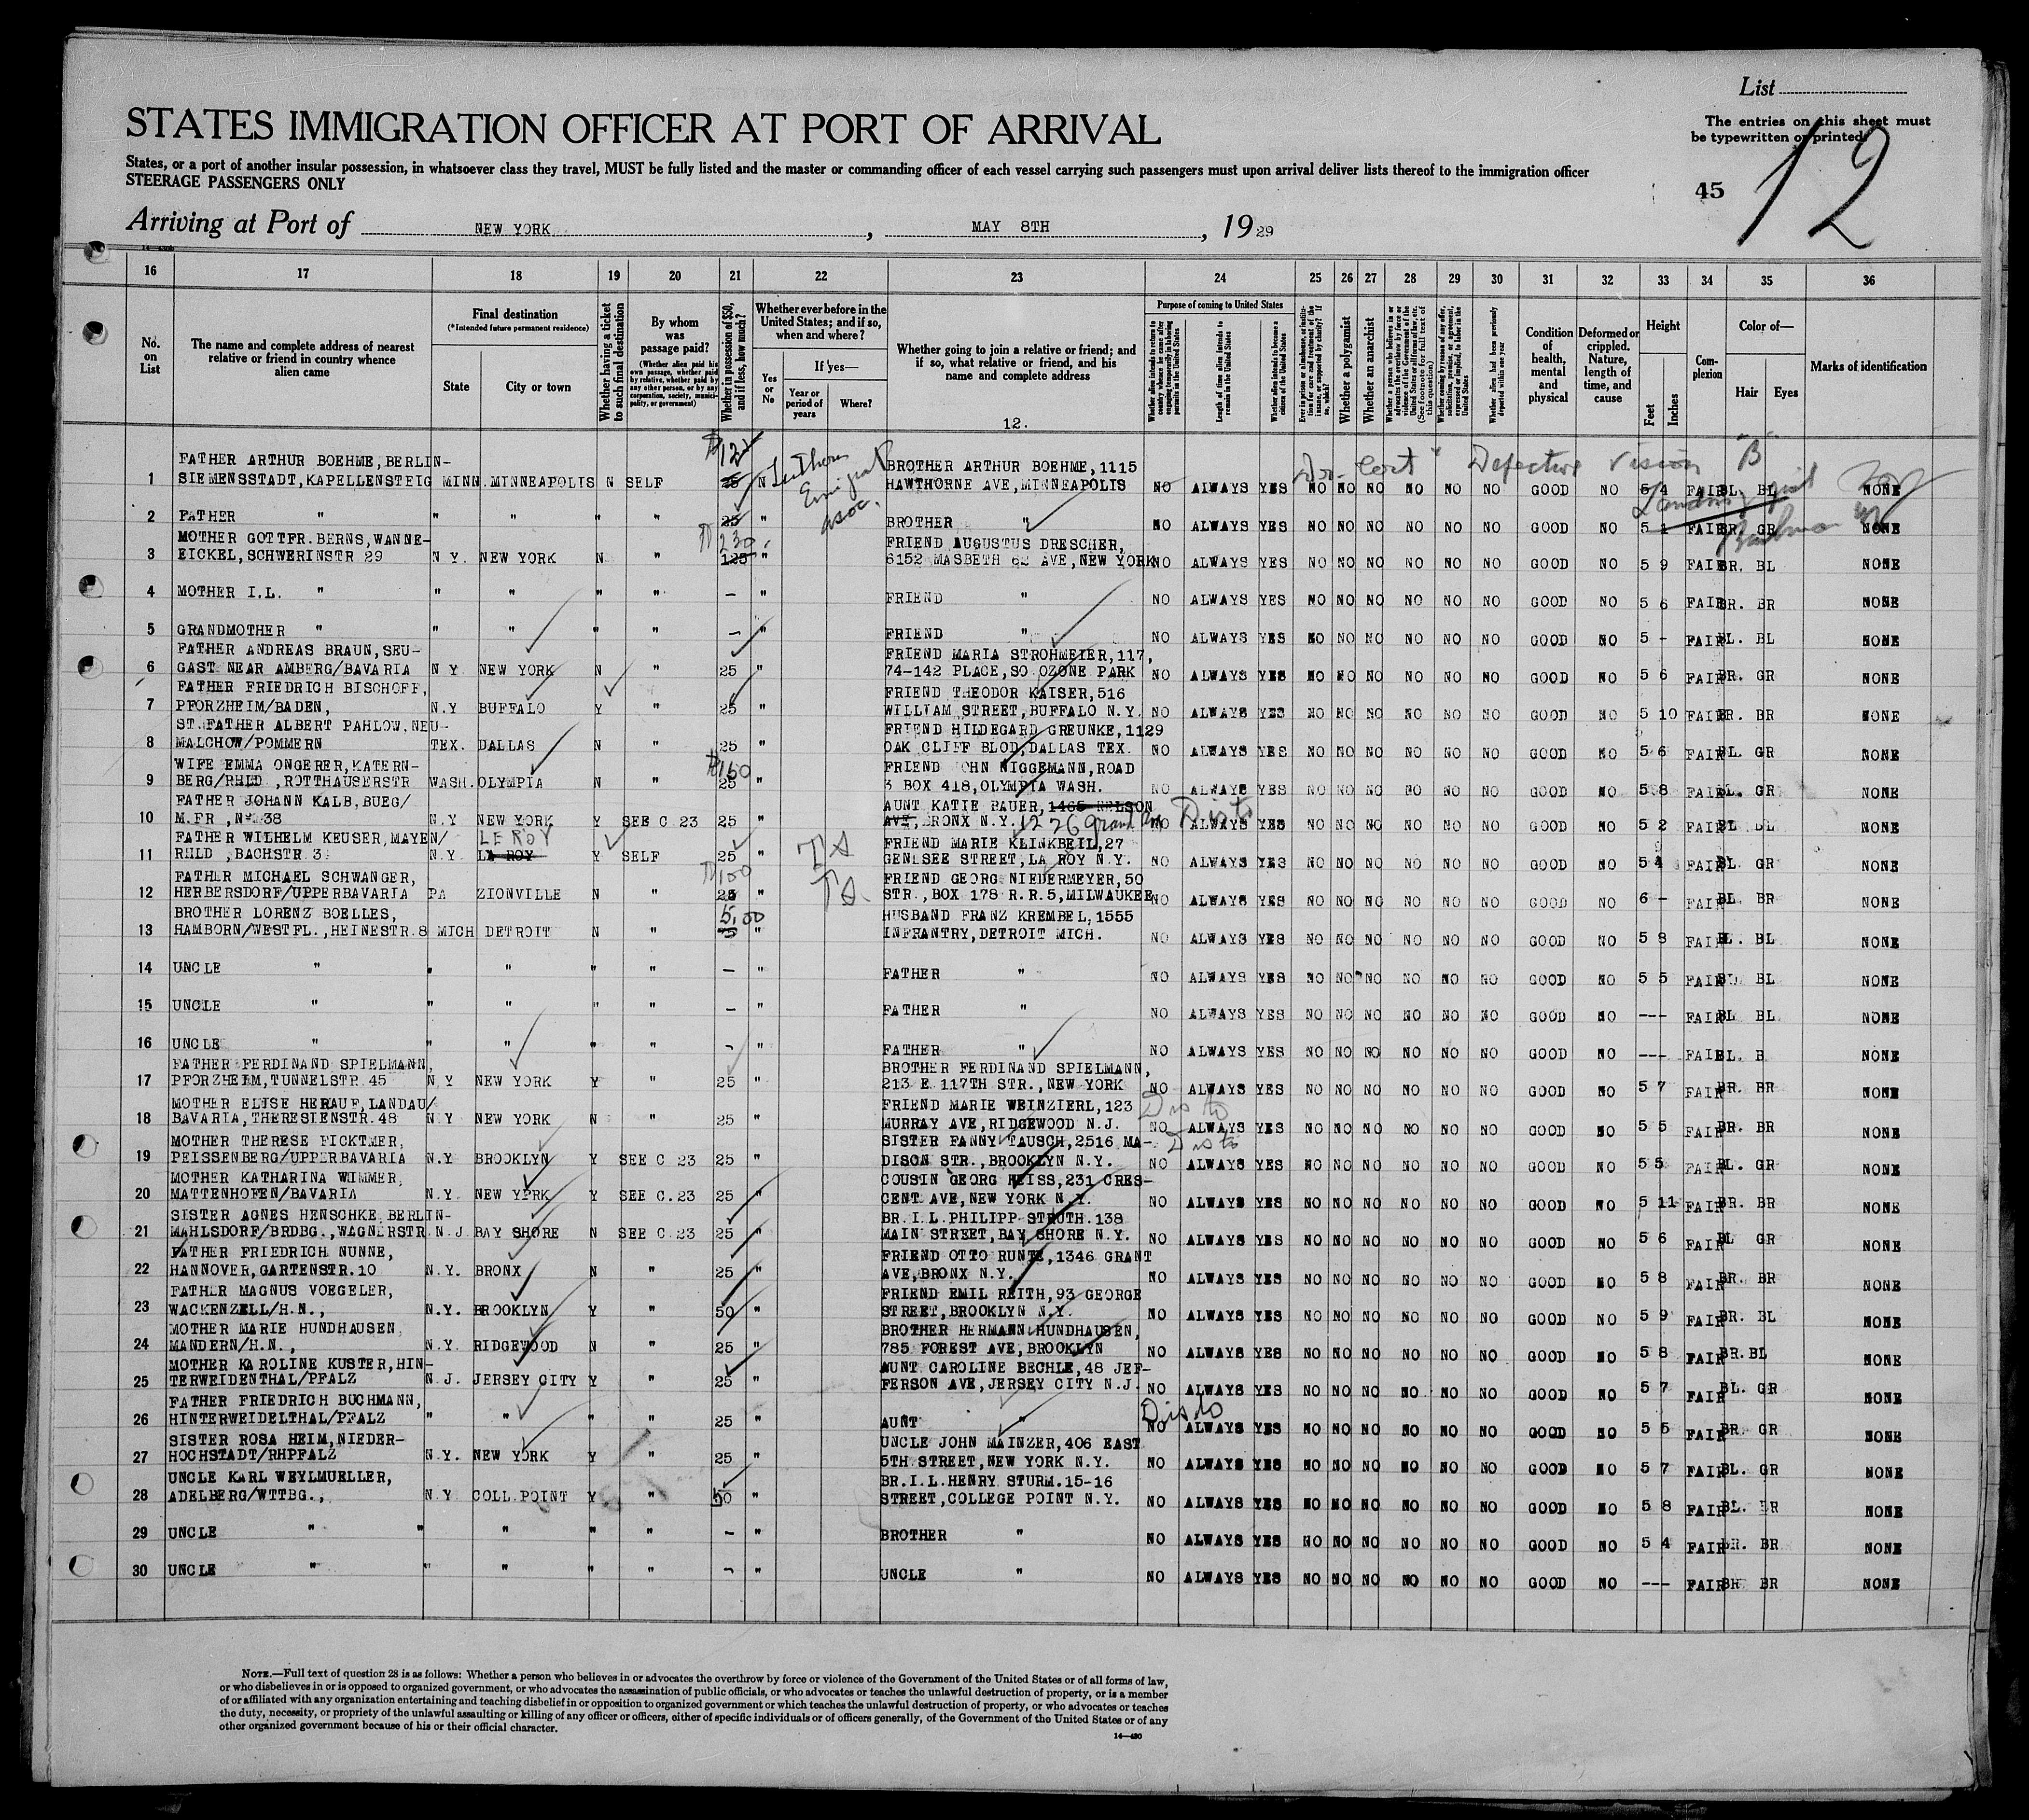 List
STATES IMMIGRATION OFFICER AT PORT OF ARRIVAL
The entries on this sheet must
be typewritten or printed.
States, or a port of another insular possession, in whatsoever class they travel, MUST be fully listed and the master or commanding officer of each vessel carrying such passengers must upon arrival deliver lists thereof to the immigration officer
STEERAGE PASSENGERS ONLY
45
12
Arriving at Port of NEW YORK, MAY 8TH, 1929
16 17 18 19 20 21 22 23 24 25 26 27 28 29 30 31 32 33 34 35 36
No. on List
The name and complete address of nearest relative or friend in country whence alien came
Final destination
(*Intended future permanent residence)
State
City or town
Whether having a ticket to such final destination
By whom was passage paid?
(Whether alien paid his own passage, whether paid by relative, whether paid by any other person, or by any corporation, society, municipality, or government)
Whether in possession of $50, and if less, how much?
Whether ever before in the United States; and if so, when and where?
Yes or No
If yes—
Year or period of years
Where?
Whether going to join a relative or friend; and if so, what relative or friend, and his name and complete address
12.
Purpose of coming to United States
Whether alien intends to return to country whence he came after engaging temporarily in laboring pursuits in the United States
Length of time alien intends to remain in the United States
Whether alien intends to become a citizen of the United States
Ever in prison or almshouse, or institution for care and treatment of the insane, or supported by charity? If so, which?
Whether a polygamist
Whether an anarchist
Condition of health, mental and physical
Deformed or crippled. Nature, length of time, and cause
Height
Feet
Inches
Complexion
Color of—
Hair
Eyes
Marks of identification
Defective Vision "B"
1 FATHER ARTHUR BOEHME, BERLIN-
SIEMENSSTADT, KAPELLENSTEIG MINN. MINNEAPOLIS N SELF 25 N BROTHER ARTHUR BOEHME, 1115
HAWTHORNE AVE, MINNEAPOLIS NO ALWAYS YES NO NO NO NO NO NO GOOD NO 5 4 FAIR BL. BL NONE
2 FATHER " " " " " 25 " BROTHER " NO ALWAYS YES NO NO NO NO NO NO GOOD NO 5 1 FAIR BR. GR NONE
3 MOTHER GOTTFR. BERNS, WANNE-
EICKEL, SCHWERINSTR 29 N Y. NEW YORK N " 230 125 " FRIEND AUGUSTUS DRESCHER,
6152 MASBETH 62 AVE, NEW YORK NO ALWAYS YES NO NO NO NO NO NO GOOD NO 5 9 FAIR BR. BL NONE
4 MOTHER I.L. " " " " " - " FRIEND " NO ALWAYS YES NO NO NO NO NO NO GOOD NO 5 6 FAIR BR. BR NONE
5 GRANDMOTHER " " " " " - " FRIEND " NO ALWAYS YES NO NO NO NO NO NO GOOD NO 5 - FAIR BL. BL NONE
6 FATHER ANDREAS BRAUN, SEU-
GAST NEAR AMBERG/BAVARIA N Y. NEW YORK N " 25 " FRIEND MARIA STROHMEIER, 117,
74-142 PLACE, SO OZONE PARK NO ALWAYS YES NO NO NO NO NO NO GOOD NO 5 6 FAIR BR. GR NONE
7 FATHER FRIEDRICH BISCHOFF,
PFORZHEIM/BADEN, N.Y BUFFALO Y " 25 " FRIEND THEODOR KAISER, 516
WILLIAM STREET, BUFFALO N.Y. NO ALWAYS YES NO NO NO NO NO NO GOOD NO 5 10 FAIR BR. BR NONE
8 ST. FATHER ALBERT PAHLOW, NEU-
MALCHOW/POMMERN TEX. DALLAS N " 25 " FRIEND HILDEGARD GREUNKE, 1129
OAK CLIFF BLOD, DALLAS TEX. NO ALWAYS YES NO NO NO NO NO NO GOOD NO 5 6 FAIR BL. GR NONE
9 WIFE EMMA ONGERER, KATERN-
BERG/RHLD., ROTTHAUSERSTR WASH. OLYMPIA N " $160 25 " FRIEND JOHN NIGGEMANN, ROAD
3 BOX 418, OLYMPIA WASH. NO ALWAYS YES NO NO NO NO NO NO GOOD NO 5 8 FAIR BL. GR NONE
10 FATHER JOHANN KALB, BUEG/
M.FR., No 38 N.Y NEW YORK Y SEE C 23 25 " AUNT KATIE BAUER, 1465 NELSON
AVE, BRONX N.Y. 1226 Grand Ave NO ALWAYS YES NO NO NO NO NO NO GOOD NO 5 2 FAIR BL BL NONE
11 FATHER WILHELM KEUSER, MAYEN/
RHLD., BACHSTR 3 N.Y. LE ROY LA ROY Y SELF 25 " FRIEND MARIE KLINKBEIL, 27
GENESEE STREET, LA ROY N.Y. NO ALWAYS YES NO NO NO NO NO NO GOOD NO 5 4 FAIR BL. GR NONE
12 FATHER MICHAEL SCHWANGER,
HERBERSDORF/UPPERBAVARIA PA ZIONVILLE N " 100 25 " FRIEND GEORG NIEDERMEYER, 50
STR., BOX 178 R.R.5, MILWAUKEE NO ALWAYS YES NO NO NO NO NO NO GOOD NO 6 - FAIR BL. BR NONE
13 BROTHER LORENZ BOELLES,
HAMBORN/WESTFL., HEINESTR.8 MICH DETROIT N " 5.00 " HUSBAND FRANZ KREMBEL, 1555
INFRANTRY, DETROIT MICH. NO ALWAYS YES NO NO NO NO NO NO GOOD NO 5 8 FAIR BL. BL NONE
14 UNCLE " " " " " - " FATHER " NO ALWAYS YES NO NO NO NO NO NO GOOD NO 5 5 FAIR BL. BL NONE
15 UNCLE " " " " " - " FATHER " NO ALWAYS YES NO NO NO NO NO NO GOOD NO --- FAIR BL BL NONE
16 UNCLE " " " " " - " FATHER " NO ALWAYS YES NO NO NO NO NO NO GOOD NO --- FAIR BL. B NONE
17 FATHER FERDINAND SPIELMANN,
PFORZHEIM, TUNNELSTR. 45 N Y NEW YORK Y " 25 " BROTHER FERDINAND SPIELMANN,
213 E. 117TH STR., NEW YORK NO ALWAYS YES NO NO NO NO NO NO GOOD NO 5 7 FAIR BR. BR NONE
18 MOTHER ELISE HERAUF, LANDAU/
BAVARIA, THERESIENSTR. 48 N Y NEW YORK N " 25 FRIEND MARIE WEINZIERL, 123
MURRAY AVE, RIDGEWOOD N.J. NO ALWAYS YES NO NO NO NO NO NO GOOD NO 5 5 FAIR BR. BR NONE
19 MOTHER THERESE PICKTMER,
PEISSENBERG/UPPERBAVARIA N.Y BROOKLYN Y SEE C 23 25 " SISTER FANNY TAUSCH, 2516 MA-
DISON STR., BROOKLYN N.Y. NO ALWAYS YES NO NO NO NO NO NO GOOD NO 5 5 FAIR BL. GR NONE
20 MOTHER KATHARINA WIMMER,
MATTENHOFEN/BAVARIA N.Y. NEW YPRK Y SEE C.23 25 " COUSIN GEORG HEISS, 231 CRES-
CENT AVE, NEW YORK N.Y. NO ALWAYS YES NO NO NO NO NO NO GOOD NO 5 11 FAIR BR. BR NONE
21 SISTER AGNES HENSCHKE, BERLIN-
MAHLSDORF/BRDBG., WAGNERSTR N.J. BAY SHORE N SEE C 23 25 " BR. I.L. PHILIPP STRUTH. 138
MAIN STREET, BAY SHORE N.Y. NO ALWAYS YES NO NO NO NO NO NO GOOD NO 5 6 FAIR BL GR NONE
22 FATHER FRIEDRICH NUNNE,
HANNOVER, GARTENSTR. 10 N.Y. BRONX N " 25 " FRIEND OTTO RUNTE, 1346 GRANT
AVE, BRONX N.Y. NO ALWAYS YES NO NO NO NO NO NO GOOD NO 5 8 FAIR BR. BR NONE
23 FATHER MAGNUS VOEGELER,
WACKENZELL/H.N., N.Y. BROOKLYN Y " 50 " FRIEND EMIL REITH, 93 GEORGE
STREET, BROOKLYN N.Y. NO ALWAYS YES NO NO NO NO NO NO GOOD NO 5 9 FAIR BR. BL NONE
24 MOTHER MARIE HUNDHAUSEN,
MANDERN/H.N., N.Y. RIDGEWOOD N " 25 " BROTHER HERMANN HUNDHAUSEN,
785 FOREST AVE, BROOKLYN NO ALWAYS YES NO NO NO NO NO NO GOOD NO 5 8 FAIR BR. BL NONE
25 MOTHER KAROLINE KUSTER, HIN-
TERWEIDENTHAL/PFALZ N.J. JERSEY CITY Y " 25 " AUNT CAROLINE BECHLE, 48 JEF-
FERSON AVE, JERSEY CITY N.J. NO ALWAYS YES NO NO NO NO NO NO GOOD NO 5 7 FAIR BL. GR NONE
26 FATHER FRIEDRICH BUCHMANN,
HINTERWEIDELTHAL/PFALZ " " " " 25 " AUNT " NO ALWAYS YES NO NO NO NO NO NO GOOD NO 5 5 FAIR BR. GR NONE
27 SISTER ROSA HEIM, NIEDER-
HOCHSTADT/RHPFALZ N.Y. NEW YORK Y " 25 " UNCLE JOHN MAINZER, 406 EAST
5TH STREET, NEW YORK N.Y. NO ALWAYS YES NO NO NO NO NO NO GOOD NO 5 7 FAIR BL. GR NONE
28 UNCLE KARL WEYLMUELLER,
ADELBERG/WTTBG., N.Y COLL. POINT Y " 50 " BR. I.L. HENRY STURM. 15-16
STREET, COLLEGE POINT N.Y. NO ALWAYS YES NO NO NO NO NO NO GOOD NO 5 8 FAIR BL. BR NONE
29 UNCLE " " " " " - " BROTHER " NO ALWAYS YES NO NO NO NO NO NO GOOD NO 5 4 FAIR BR. BR NONE
30 UNCLE " " " " " - " UNCLE " NO ALWAYS YES NO NO NO NO NO NO GOOD NO --- FAIR BR BR NONE
NOTE.—Full text of question 28 is as follows: Whether a person who believes in or advocates the overthrow by force or violence of the Government of the United States or of all forms of law,
or who disbelieves in or is opposed to organized government, or who advocates the assassination of public officials, or who advocates or teaches the unlawful destruction of property, or is a member
of or affiliated with any organization entertaining and teaching disbelief in or opposition to organized government or which teaches the unlawful destruction of property, or who advocates or teaches
the duty, necessity, or propriety of the unlawful assaulting or killing of any officer or officers, either of specific individuals or of officers generally, of the Government of the United States or of any
other organized government because of his or their official character.
14—430